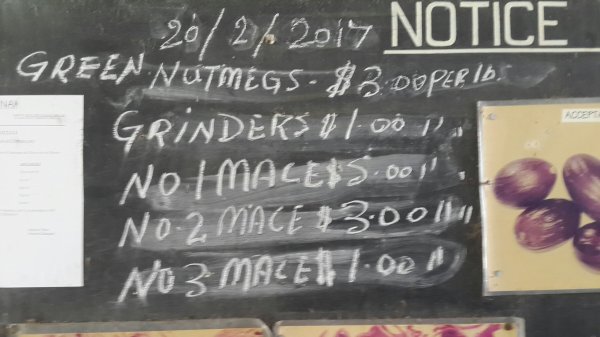 NOTICE
20/2/2017
GREEN NUTMEGS - $3.00 PER lb.
GRINDERS $1.00 " "
NO 1 MACE $5.00 " "
NO. 2 MACE $3.00 " "
NO 3 MACE $1.00 " "
ACCEPTA